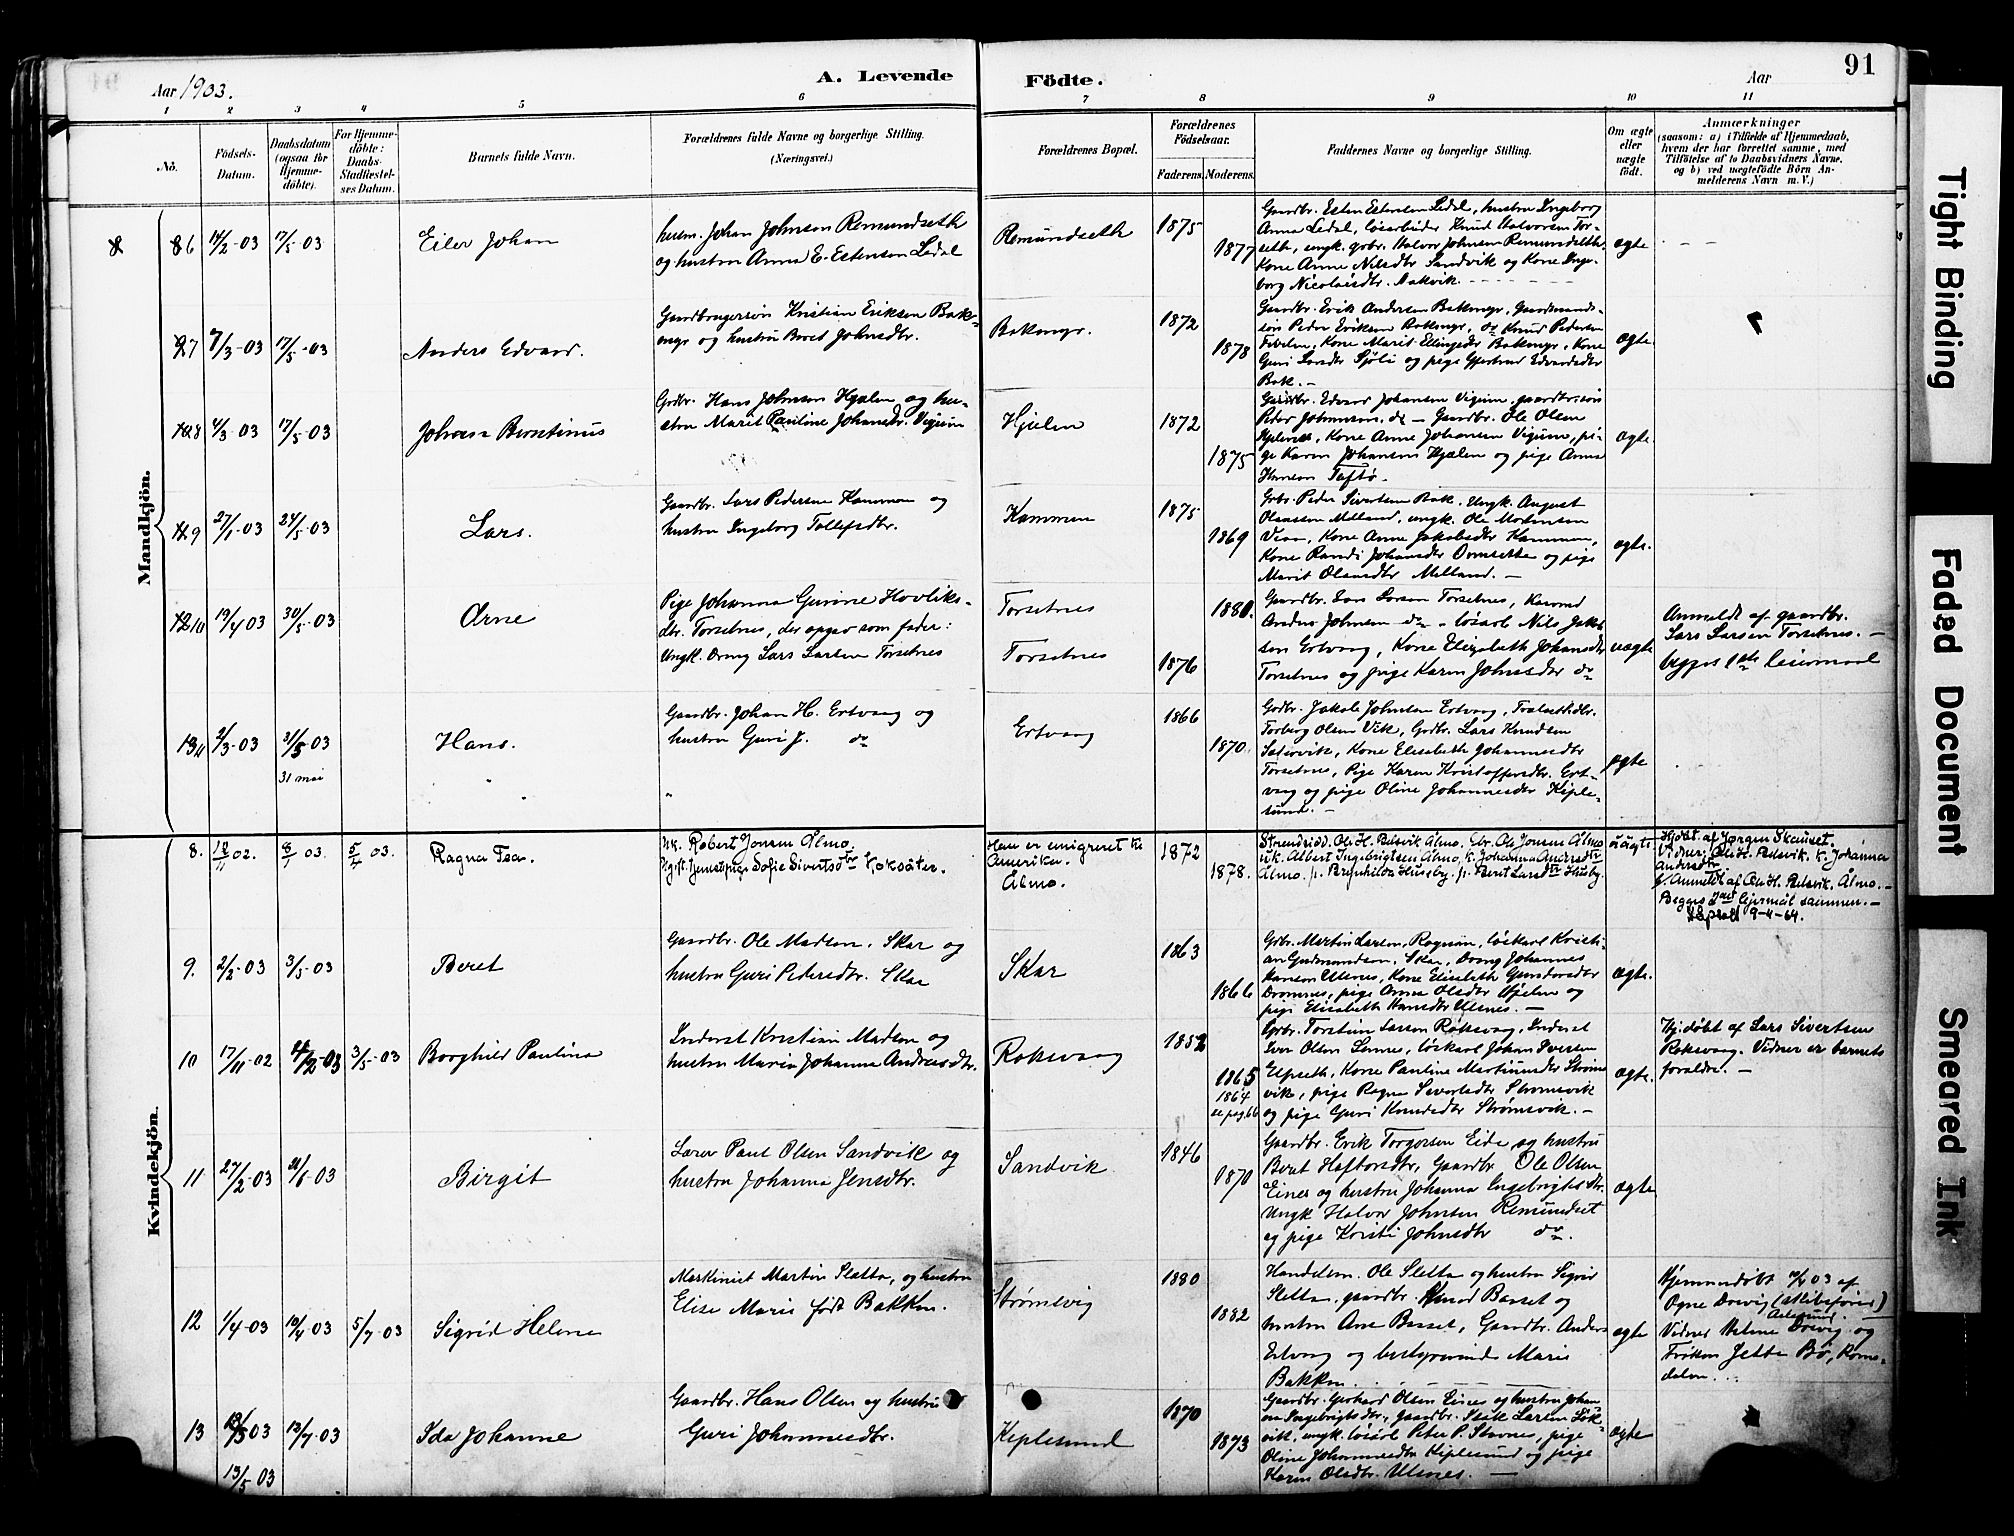 Aar 1903.
A. Levende
Födte.
Aar
91
1 2 3 4 5 6 7 8 9 10 11
No.
Födsels-Datum.
Daabsdatum (ogsaa for Hjemme-döbte).
For Hjemme-döbte: Daabs-Stadfæstel-ses Datum.
Barnets fulde Navn.
Forældrenes fulde Navne og borgerlige Stilling. (Næringsvei.)
Forældrenes Bopæl.
Forældrenes Födselsaar.
Faderens. Moderens.
Faddernes Navne og borgerlige Stilling.
Om ægte eller uægte födt.
Anmærkninger
(saasom: a) i Tilfælde af Hjemmedaab,
hvem der har forrettet samme, med
Tilföielse af to Daabsvidners Navne,
og b) ved uægtefödte Börn An-
melderens Navn m. V.)
Mandkjön.
6 14/2-03 17/5-03
Eiler Johan
husm. Johan Johnsen Remundseth
og hustru Anna E. Estensen Ledal
Remundseth
1875
1877
Gaardbr. Esten Estensen Ledal, hustru Ingeborg
Anna Ledal, løsarbeider Knud Halvorsen Tor-
seth, ungk. grbr. Halvor Johnsen Remundseth
Kone Anne Nilsdtr Sandvik og Kone Inge-
borg Nicolaisdtr. Aakvik.
ægte
7 7/3-03 17/5-03
Anders Edvard.
Gaardbrugersøn Kristian Eriksen Bak-
myr og hustru Beret Johnsdtr.
Bakmyr.
1872
1878
Gaardbr. Erik Andersen Bakmyr, Gaardmands-
søn Peder Eriksen Bakmyr, do Knud Pedersen
Kone Marit Ellingsdtr Bakmyr, Kone
Guri Larsdtr Sjøli og pige Gjertrud Edvardsdtr
Bak. -
ægte.
8 4/3-03 17/5-03
Johan Berntinus
Grdbr. Hans Johnsen Hjelen og hu-
stru Marit Pauline Johansdtr. Vigum
Hjelen
1872
1875
Gaardbr. Edvard Johansen Vigum, gaardbr.søn
Peter Johansen do - Gaardbr. Ole Olsen
Kone Anne Johansen Vigum, pi-
ge Karen Johansen Hjelen og pige Anna
Hansen Tøftø.
ægte.
9 27/1-03 24/5-03
Lars.
Gaardbr. Lars Pedersen Kammen og
hustru Ingeborg Tollefsdtr.
Kammen
1875
1869
Grbr. Peder Sivertsen Bak, Ungk. August
Olaussen Melland, ungk. Ole Mortensen
Kone Anne Jakobsdtr Kammen,
Kone Randi Johansdtr Ormsettr og pige
Marit Olausdtr Melland. -
ægte.
10 19/4 03 30/5-03
Arne
Pige Johanna Gurine Hovliks-
dtr. Torsetnes, der opgav som fader:
Ungk. Dreng Lars Larsen Torsetnes
Torsetnes
Torsetnes
1880.
1876
Gaardbr. Lars Larsen Torsetnes,
Johnsen do - løsarb Nils Jakob
sen Ertvaag, Kone Elisabeth Johansdtr
Torsetnes og pige Karen Johnsdtr do
uægte
Anmeldt af gaardbr.
Lars Larsen Torsetnes. -
begges 1ste leiermaal
11 2/3-03 31/5-03
31 mai
Hans.
Gaardbr. Johan H. Ertvaag og
hustru Guri J. do
Ertvaag
1866
1870.
Grdbr. Jakob Johnsen Ertvaag,
Torberg Olsen Vik, Grdbr. Lars Knudsen
Sætervik, Kone Elisabeth Johannesdtr
Torsetnes, Pige Karen Kristoffersdtr. Ert-
vaag og pige Oline Johannesdtr Keiple-
sund. -
ægte
Kvindekjön.
8. 18/11 02. 8/1 03. 5/4 03.
Ragna Isa.
Uk. Robert Jonsen Ålmo.
Ugift tjenestpige Sofie Sivertsdtr Koksäter.
Han er emigreret til
Amerika.
Ålmo.
1872
1878.
Strandsidd. Ole H. Belsvik Ålmo. Gbr. Ole Jonsen Ålmo
uk. Albert Ingebrigtsen Ålmo, k. Johanna Andersdtr
Ålmo. p. Brynhilda Husby. p. Beret Larsdtr Husby.
uägte
Hjdøbt. af Jørgen Skaueet.
Vidner: Ole H. Belsvik. k. Johanna
Andersdtr
Anmeldt af Ole H. Belsvik. Ålmo.-
Begges 1ste lejermål sammen. -
9-4-64.
9. 2/2-03 3/5-03
Beret
Gaardbr. Ole Madsen. Skar og
hustru Guri Pedersdtr. Skar
Skar
1863
1866
Grbr. Martin Larsen, Rognan, løskarl Kristi-
an Gudmundsen, Skar, Dreng Johannes
Hansen Ulsnes, Kone Elisabeth Gundersdtr
Dromnes, pige Anna Olsdtr Hjelen og
pige Elisabeth Hansdtr Ulsnes. -
ægte.
10 17/11-02 4/2-03 3/5-03
Borghild Paulina
Inderst Kristian Madsen og
hustru Maria Johanna Andreasdtr.
Roksvaag
1852
1865
1864
se pag 66
Grbr. Torstein Larsen Roksvaag, Inderst
Iver Olsen løskarl Johan Iversen
Elpseth, Kone Pauline Martinusdtr Strøms
vik, pige Ragna Sivertsdtr Strømsvik
og pige Guri Knudsdtr Strømsvik. -
ægte.
Hj.døbt af Lars Sivertsen
Roksvaag. Vidner er barnets
forældre. -
11 27/2-03 21/6-03
Birgit
Lærer Paul Olsen Sandvik og
hustru Johanna Jensdtr.
Sandvik
1846
1870
Gaardbr. Erik Torgersen Eide og hustru
Beret Haftorsdtr, Gaardbr. Ole Olsen
Eines og hustru Johanna Ingebrigtsdtr.
Ungk Halvor Johnsen Remundset
og pige Kristi Johnsdtr do.
ægte
12 1/4-03 10/4-03 5/7-03
Sigrid Helene
Maskinist Martin Sletta, og hustru
Elise Marie født Bakken.
Strømsvig
1880
1882
Handelsm. Ole Sletta og hustru Sigrid
Sletta, gaardbr. Knud Basset og
hustru Ane Basset, Gaardbr. Anders
Ertvaag og bestyrerinde Marie
Bakken.
ægte
Hjemmedøbt 10/4 03 af
Ogne Drevig (skibsfører)
Aalesund. -
Vidner Helene Drevig og
Frøken Jetta Bø, Roms-
dalen.
13 13/5 03 12/7-03
13/5 03
Ida Johanne
Gaardbr. Hans Olsen og hustru
Guri Johannesdtr.
Keiplesund
1870
1873
Gaardbr. Gerhard Olsen Eines og hustru Johan-
na Ingebrigtsdtr, gaardbr. Isak Larsen Løk-
vik, ungk. løskarl Peter P. Stavnes, pige
Oline Johannesdtr Keiplesund og pige
Karen Olsdtr. Ulsnes. -
ægte
Tight Binding
Faded Document
Smeared Ink